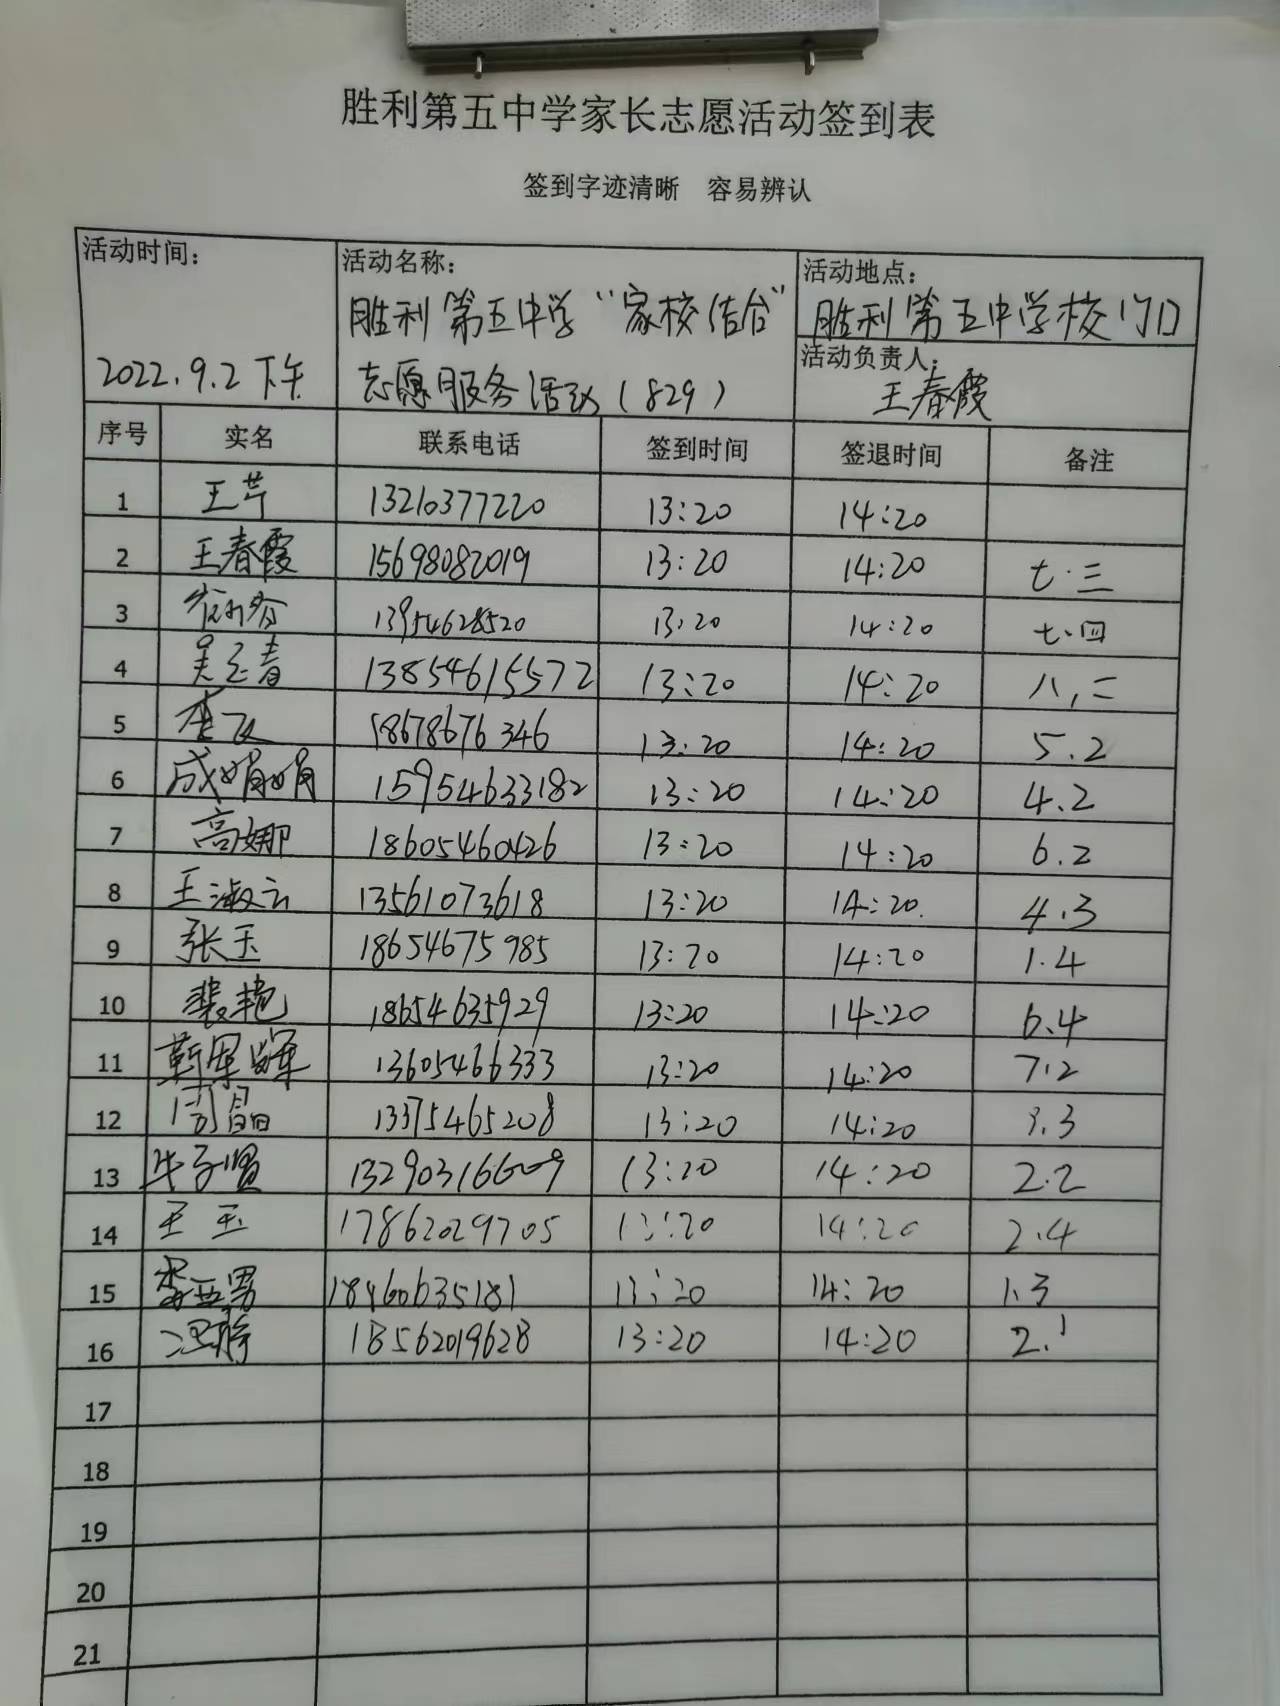 胜利第五中学家长志愿活动签到表
签到字迹清晰 容易辨认
活动时间：
2022.9.2下午
活动名称：
胜利第五中学“家校结合”
志愿服务活动（829）
活动地点：
胜利第五中学校门口
活动负责人：
王春霞
序号 实名 联系电话 签到时间 签退时间 备注
1 王芹 13210377220 13:20 14:20
2 王春霞 15698082019 13:20 14:20 七.三
3 13954628520 13:20 14:20 七.四
4 13854615572 13:20 14:20 八,二
5 李飞 18678676346 13:20 14:20 5.2
6 成娟娟 15954633182 13:20 14:20 4.2
7 高娜 18605460426 13:20 14:20 6.2
8 王淑云 13561073618 13:20 14:20 4.3
9 张玉 18654675985 13:20 14:20 1.4
10 裴艳 18654635929 13:20 14:20 6.4
11 靳军 13605466333 13:20 14:20 7.2
12 周晶 13375465208 13:20 14:20 .3
13 牛子贤 13290316609 13:20 14:20 2.2
14 王玉 17862029705 13:20 14:20 2.4
15 亚男 18460635181 13:20 14:20 1.3
16 冯静 18562019628 13:20 14:20 2.1
17
18
19
20
21